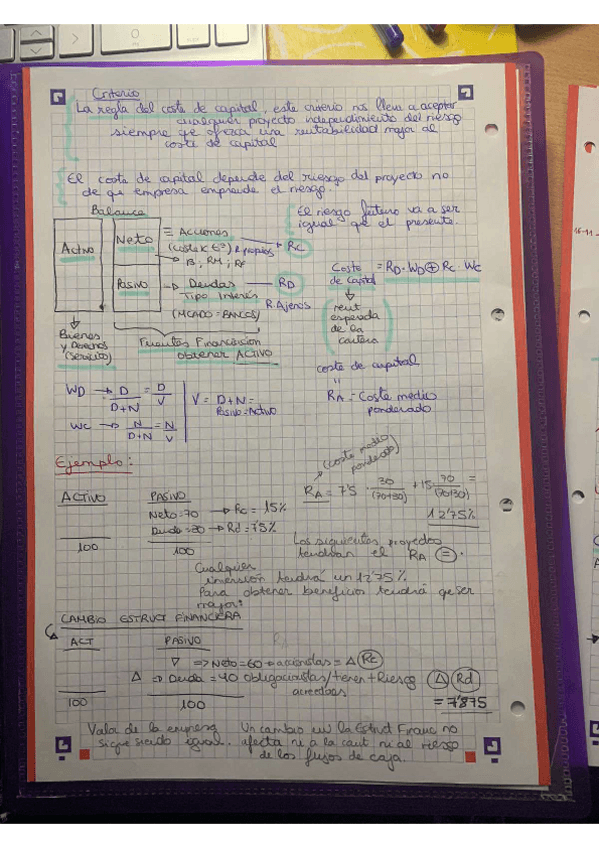 Criterio
La regla del coste de capital, este criterio nos lleva a aceptar
cualquier proyecto independimiento del riesgo
siempre qe ofrezca una rentabilidad mayor al
coste de capital
El coste de capital depende del riesgo del proyecto no
de qe empresa emprende el riesgo.
Balance
El riesgo futuro va a ser
igual qe el presente.
Activo
Neto
= Acciones
(coste K Eº) R propios → Rc
B, RM, RF
Pasivo → Deudas — RD
Tipo Interés R. Ajenos
(MCADO = BANCOS)
Coste de capital = RD · WD ⊕ Rc · Wc
(rent
esperada
de la
cartera)
Bienes
y Derechos
(Servicio)
Fuentes Financiación
obtener ACTIVO
coste de capital
=
RA = Coste medio
ponderado
WD → D/D+N = D/V
Wc → N/D+N = N/V
V = D+N =
Pasivo = Activo
Ejemplo:
(coste medio
ponderado)
RA = 7'5 · 30/(70+30) + 15 · 70/(70+30) =
12'75%
ACTIVO PASIVO
Neto = 70 → Rc = 15%
Deuda = 30 → Rd = 7'5%
100 100
Los siguientes proyectos
tendran el RA =.
Cualquier
inversión tendrá un 12'75%.
Para obtener beneficios tendrá qe ser
mayor
CAMBIO ESTRUCT FINANCIERA
ACT PASIVO
∇ => Neto = 60 → accionistas = Δ Rc
Δ => Deuda = 40 obligacionistas/tienen + Riesgo Δ Rd
acreedores
= 7'875
100 100
Valor de la empresa
sigue siendo igual.
Un cambio en la Estruct Financ no
afecta ni a la cant ni al riesgo
de los flujos de caja.